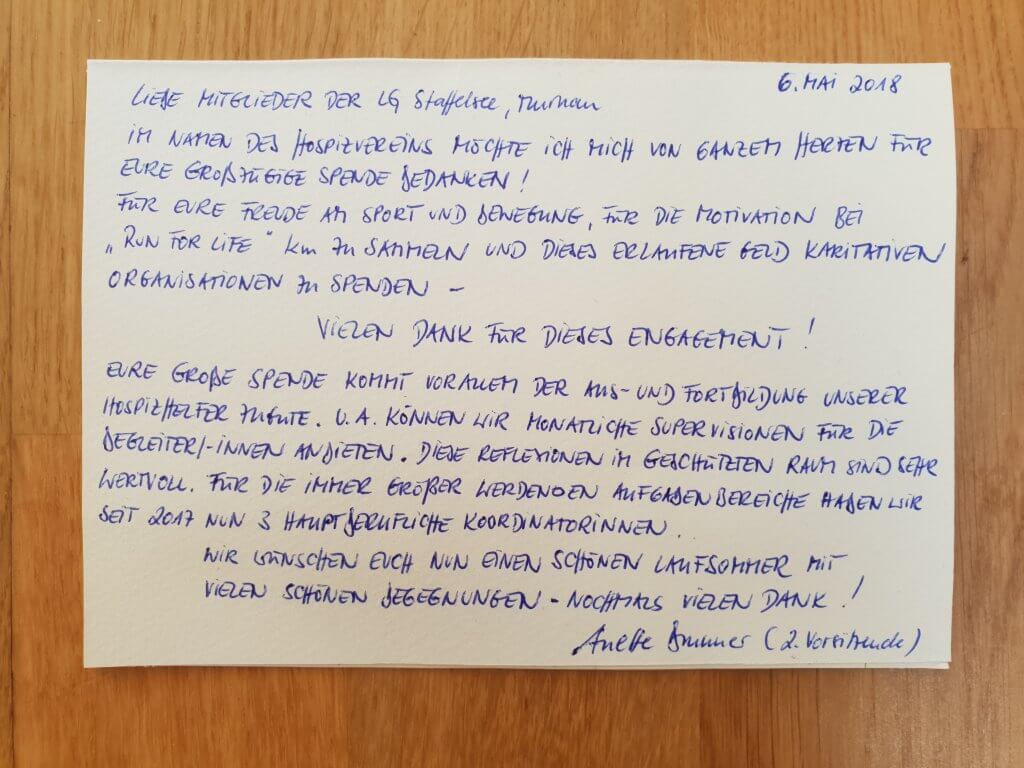 6. MAI 2018
LIEBE MITGLIEDER DER LG Staffelsee, Murnau
IM NAMEN DES HOSPIZVEREINS MÖCHTE ICH MICH VON GANZEM HERZEN FÜR
EURE GROßZÜGIGE SPENDE BEDANKEN!
FÜR EURE FREUDE AM SPORT UND BEWEGUNG, FÜR DIE MOTIVATION BEI
„RUN FOR LIFE" km ZU SAMMELN UND DIESES ERLAUFENE GELD KARITATIVEN
ORGANISATIONEN ZU SPENDEN –
VIELEN DANK FÜR DIESES ENGAGEMENT!
EURE GROßE SPENDE KOMMT VOR ALLEM DER AUS- UND FORTBILDUNG UNSERER
HOSPIZHELFER ZUGUTE. U. A. KÖNNEN WIR MONATLICHE SUPERVISIONEN FÜR DIE
BEGLEITER/-INNEN ANBIETEN. DIESE REFLEXIONEN IM GESCHÜTZTEN RAUM SIND SEHR
WERTVOLL. FÜR DIE IMMER GRÖßER WERDENDEN AUFGABENBEREICHE HABEN WIR
SEIT 2017 NUN 3 HAUPTBERUFLICHE KOORDINATORINNEN.
WIR WÜNSCHEN EUCH NUN EINEN SCHÖNEN LAUFSOMMER MIT
VIELEN SCHÖNEN BEGEGNUNGEN – NOCHMALS VIELEN DANK!
(2. Vorsitzende)